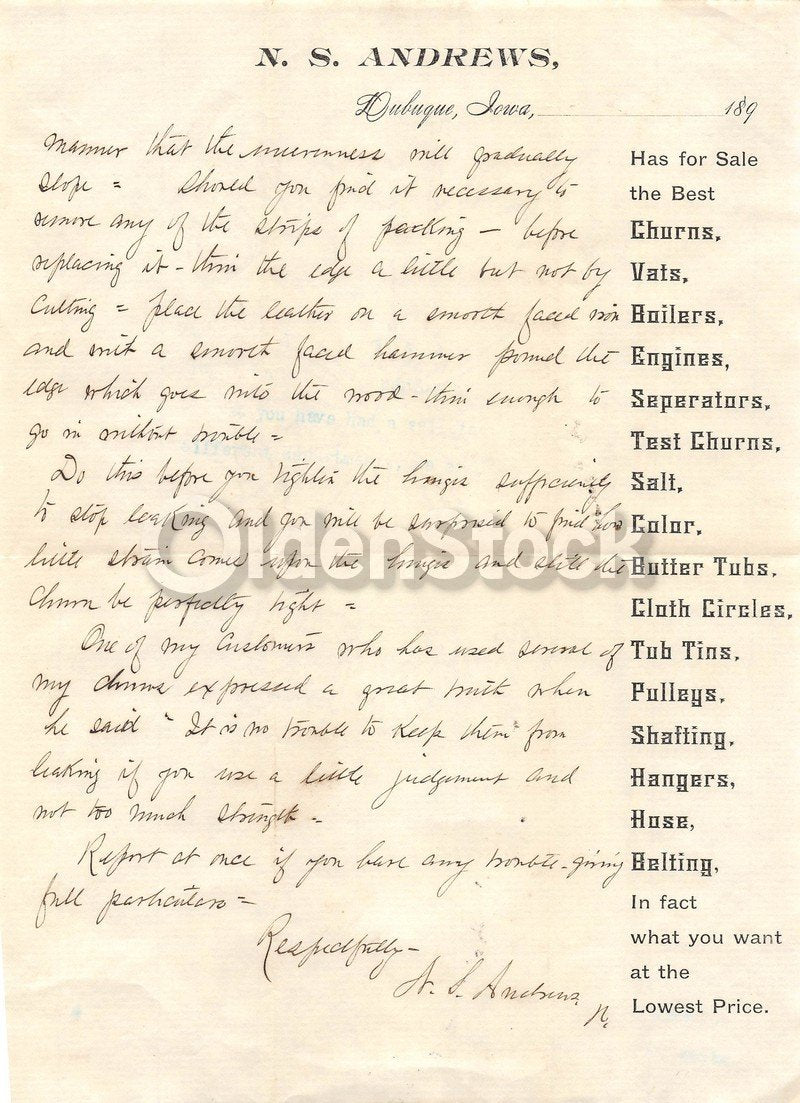 N. S. ANDREWS,
Dubuque, Iowa, 189
manner that the unevenness will gradually
slope = should you find it necessary to
remove any of the strips of packing - before
replacing it - thin the edge a little but not by
cutting = place the leather on a smooth faced iron
and with a smooth faced hammer pound the
edge which goes into the wood - thin enough to
go in without trouble =
Do this before you tighten the hinges sufficiently
to stop leaking and you will be surprised to find how
little strain comes upon the hinges and still the
churn be perfectly tight =
One of my customers who has used several of
my churns expressed a great truth when
he said "It is no trouble to keep them" from
leaking if you use a little judgement and
not too much strength -
Report at once if you have any trouble - giving
full particulars =
Respectfully -
N. S. Andrews
Has for Sale
the Best
Churns,
Vats,
Boilers,
Engines,
Seperators,
Test Churns,
Salt,
Color,
Butter Tubs,
Cloth Circles,
Tub Tins,
Pulleys,
Shafting,
Hangers,
Hose,
Belting,
In fact
what you want
at the
Lowest Price.
OldenStock